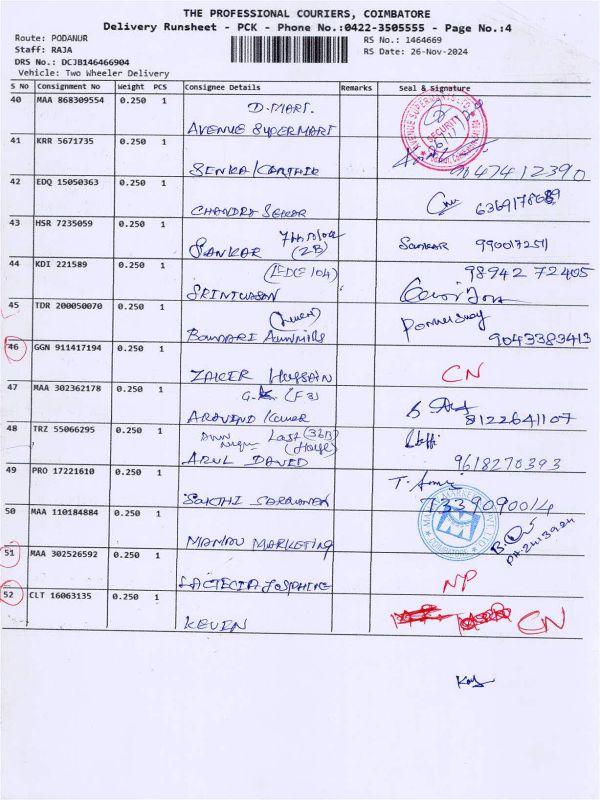 THE PROFESSIONAL COURIERS, COIMBATORE
Delivery Runsheet - PCK - Phone No.:0422-3505555 - Page No.:4
Route: PODANUR
RS No.: 1464669
Staff: RAJA
RS Date: 26-Nov-2024
DRS No.: DCJB146466904
Vehicle: Two Wheeler Delivery
S No Consignment No Weight PCS Consignee Details Remarks Seal & Signature
40 MAA 868309554 0.250 1 D.MART.
AVENUE SUPERMART
SECURITY
41 KRR 5671735 0.250 1
9047412390
42 EDQ 15050363 0.250 1
CHANDRA SEKAR
43 HSR 7235059 0.250 1 7th Block
SANKAR (2B) Sankar 990017251
44 KDI 221589 0.250 1 98942 72405
45 TDR 200050070 0.250 1
9043383413
46 GGN 911417194 0.250 1
ZAKER HUSSAIN CN
47 MAA 302362178 0.250 1 (F3)
ARAVIND Kumar 8122641107
48 TRZ 55066295 0.250 1 Last (36B)
(House)
ARUL DAVED 9618270393
49 PRO 17221610 0.250 1
SAKTHI SARAVANAN 7339090014
50 MAA 110184884 0.250 1
MARKETING
51 MAA 302526592 0.250 1
JOSPHINE NP
52 CLT 16063135 0.250 1
KEVEN CN